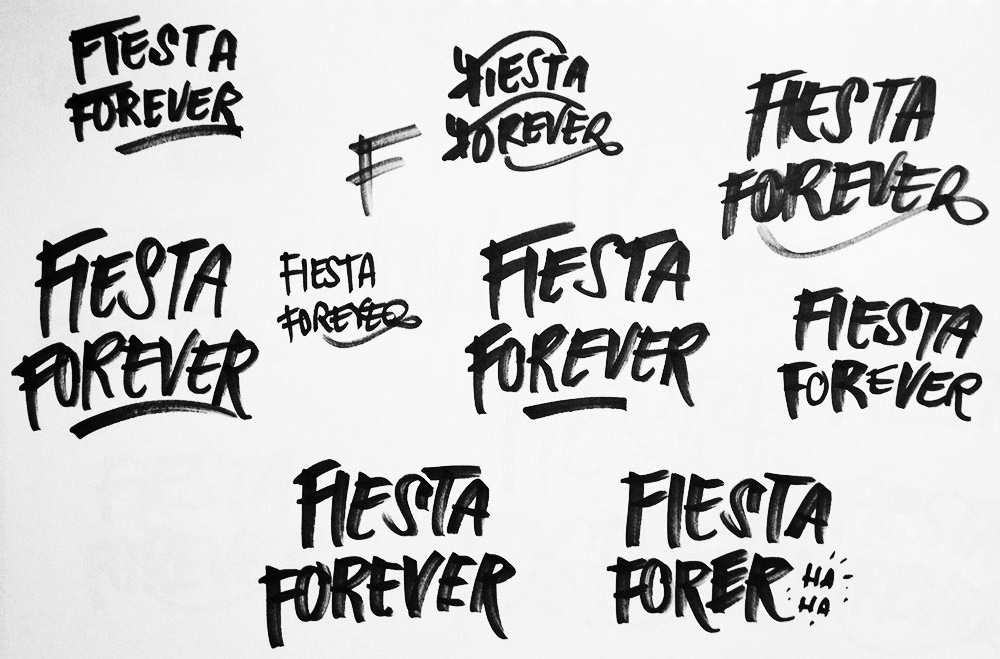 FIESTA
FOREVER
F
FIESTA
FOREVER
FIESTA
FOREVER
FIESTA
FOREVER
FIESTA
FOREVER
FIESTA
FOREVER
FIESTA
FOREVER
FIESTA
FOREVER
FIESTA
FORER
HA
HA